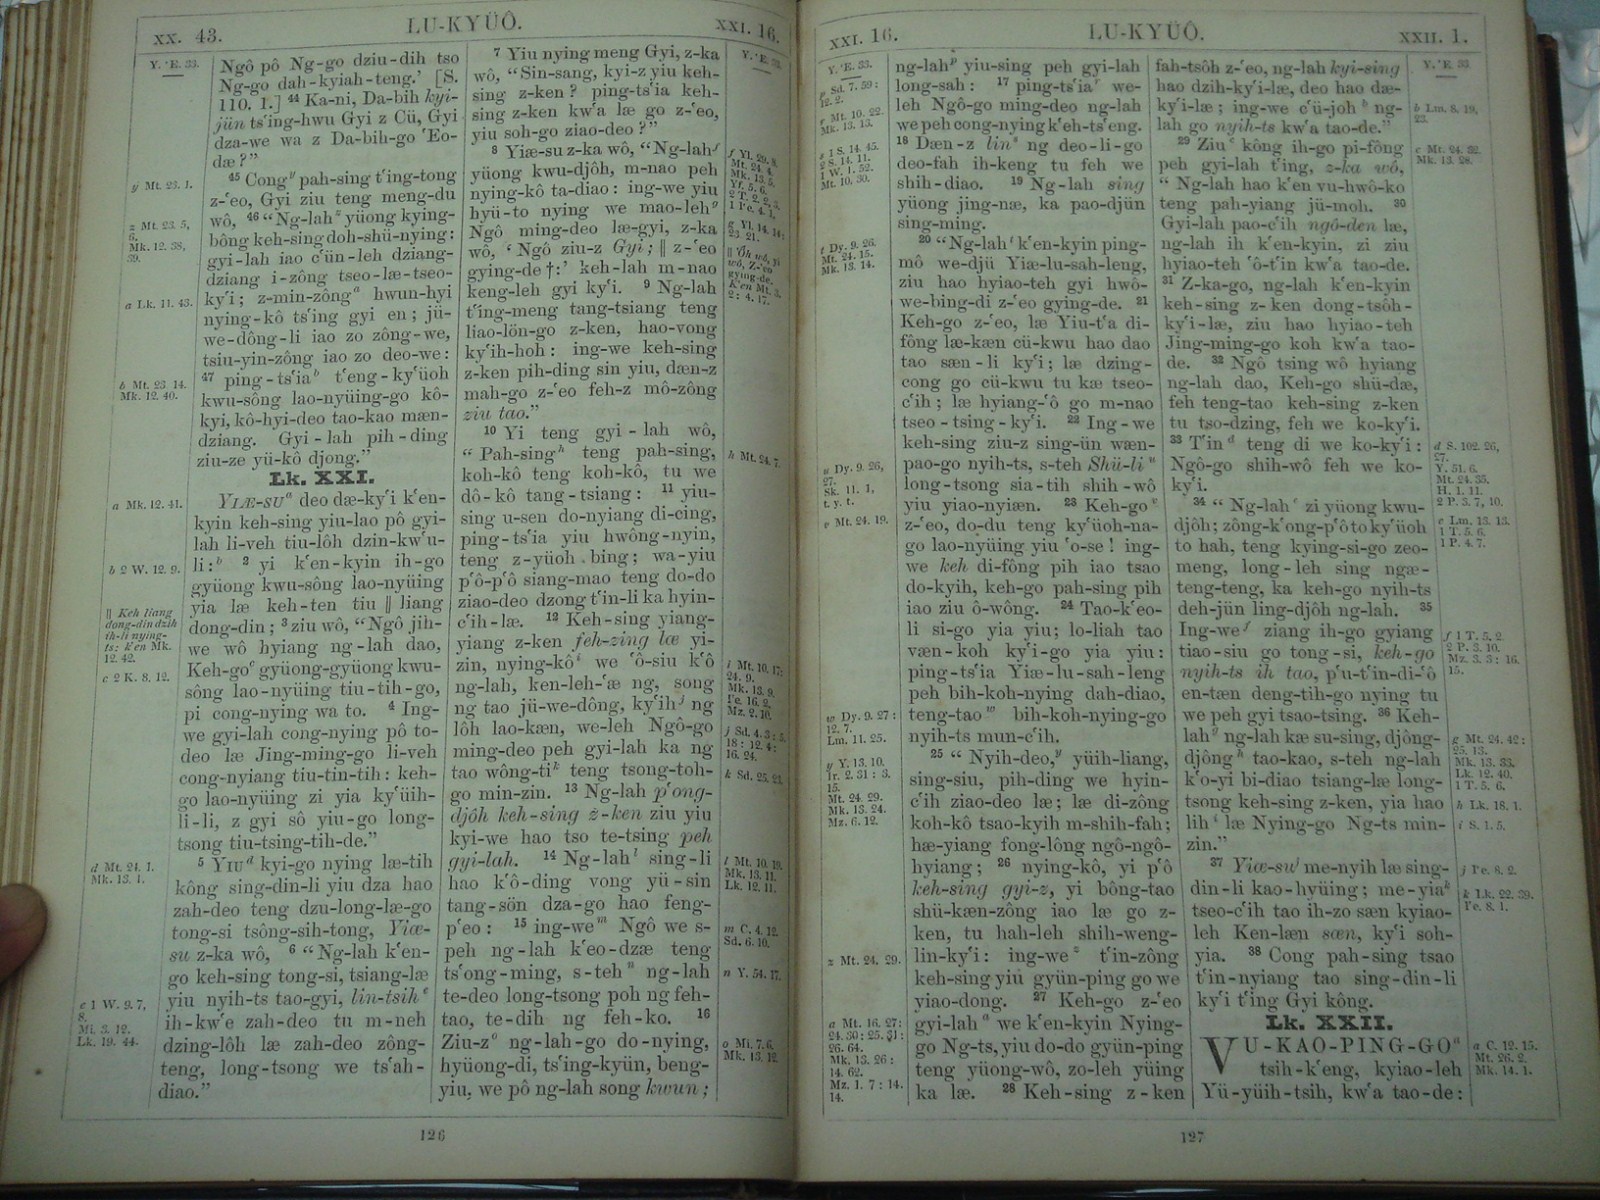 XX. 43.
LU-KYÜÔ.
XXI. 16.
Y. ʻE. 33.
y Mt. 23. 1.
z Mt. 23. 5,
6.
Mk. 12. 38,
39.
a Lk. 11. 43.
b Mt. 23. 14.
Mk. 12. 40.
a Mk. 12. 41.
b 2 W. 12. 9.
|| Keh liang
dong-din dzih
ih-li nying-
ts: kʻen Mk.
12. 42.
c 2 K. 8. 12.
d Mt. 24. 1.
Mk. 13. 1.
e 1 W. 9. 7,
8.
Mi. 3. 12.
Lk. 19. 44.
Ngô pô Ng-go dziu-dih tso
Ng-go dah-kyiah-teng.ʼ [S.
110. 1.] 44 Ka-ni, Da-bih kyi-
jün tsʻing-hwu Gyi z Cü, Gyi
dza-we wa z Da-bih-go ʻEo-
dæ?”
45 Congy pah-sing tʻing-tong
z-ʻeo, Gyi ziu teng meng-du
wô, 46 “Ng-lahz yüong kying-
bông keh-sing doh-shü-nying:
gyi-lah iao cʻün-leh dziang-
dziang i-zông tseo-læ-tseo-
kyʻi; z-min-zônga hwun-hyi
nying-kô tsʻing gyi en; jü-
we-dông-li iao zo zông-we,
tsiu-yin-zông iao zo deo-we:
47 ping-tsʻiab tʻeng-kyʻüoh
kwu-sông lao-nyüing-go kô-
kyi, kô-hyi-deo tao-kao mæn-
dziang. Gyi-lah pih-ding
ziu-ze yü-kô djong.”
Lk. XXI.
YIÆ-SUa deo dæ-kyʻi kʻen-
kyin keh-sing yiu-lao pô gyi-
lah li-veh tiu-lôh dzin-kwʻu-
li:b 2 yi kʻen-kyin ih-go
gyüong kwu-sông lao-nyüing
yia læ keh-ten tiu || liang
dong-din; 3 ziu wô, “Ngô jih-
we wô hyiang ng-lah dao,
Keh-goc gyüong-gyüong kwu-
sông lao-nyüing tiu-tih-go,
pi cong-nying wa to. 4 Ing-
we gyi-lah cong-nying pô to-
deo læ Jing-ming-go li-veh
cong-nyiang tiu-tin-tih: keh-
go lao-nyüing zi yia kyʻüih-
li-li, z gyi sô yiu-go long-
tsong tiu-tsing-tih-de.”
5 YIUd kyi-go nying læ-tih
kông sing-din-li yiu dza hao
zah-deo teng dzu-long-læ-go
tong-si tsông-sih-tong, Yiæ-
su z-ka wô, 6 “Ng-lah kʻen-
go keh-sing tong-si, tsiang-læ
yiu nyih-ts tao-gyi, lin-tsihe
ih-kwʻe zah-deo tu m-neh
dzing-lôh læ zah-deo zông-
teng, long-tsong we tsʻah-
diao.”
7 Yiu nying meng Gyi, z-ka
wô, “Sin-sang, kyi-z yiu keh-
sing z-ken? ping-tsʻia keh-
sing z-ken kwʻa læ go z-ʻeo,
yiu soh-go ziao-deo?”
8 Yiæ-su z-ka wô, “Ng-lahf
yüong kwu-djôh, m-nao peh
nying-kô ta-diao: ing-we yiu
hyü-to nying we mao-lehg
Ngô ming-deo læ-gyi, z-ka
wô, ʻNgô ziu-z Gyi; || z-ʻeo
gying-de †:ʼ keh-lah m-nao
keng-leh gyi kyʻi. 9 Ng-lah
tʻing-meng tang-tsiang teng
liao-lön-go z-ken, hao-vong
kyʻih-hoh: ing-we keh-sing
z-ken pih-ding sin yiu, dæn-z
mah-go z-ʻeo feh-z mô-zông
ziu tao.”
10 Yi teng gyi-lah wô,
“Pah-singh teng pah-sing,
koh-kô teng koh-kô, tu we
dô-kô tang-tsiang: 11 yiu-
sing u-sen do-nyiang di-cing,
ping-tsʻia yiu hwông-nyin,
teng z-yüoh-bing; wa-yiu
pʻô-pʻô siang-mao teng do-do
ziao-deo dzong tʻin-li ka hyin-
cʻih-læ. 12 Keh-sing yiang-
yiang z-ken feh-zing læ yi-
zin, nying-kôi we ʻô-siu kʻô
ng-lah, ken-leh-ʻæ ng, song
ng tao jü-we-dông, kyʻihj ng
lôh lao-kæn, we-leh Ngô-go
ming-deo peh gyi-lah ka ng
tao wông-tik teng tsong-toh-
go min-zin. 13 Ng-lah pʻong-
djôh keh-sing z-ken ziu yiu
kyi-we hao tso te-tsing peh
gyi-lah. 14 Ng-lahl sing-li
hao kʻô-ding vong yü-sin
tang-sön dza-go hao feng-
pʻeo: 15 ing-wem Ngô we s-
peh ng-lah kʻeo-dzæ teng
tsʻong-ming, s-tehn ng-lah
te-deo long-tsong poh ng feh-
tao, te-dih ng feh-ko. 16
Ziu-zo ng-lah-go do-nying,
hyüong-di, tsʻing-kyün, beng-
yiu, we pô ng-lah song kwun;
Y. ʻE. 33.
h Mt. 24. 7.
k Sd. 25. 23.
l Mt. 10. 19.
Mk. 13. 11.
Lk. 12. 11.
m C. 4. 12.
Sd. 6. 10.
n Y. 54. 17.
o Mi. 7. 6.
Mk. 13. 12.
126
XXI. 16.
LU-KYÜÔ.
XXII. 1.
Y. ʻE. 33.
p Sd. 7. 59:
12. 2.
r Mt. 10. 22.
Mk. 13. 13.
s 1 S. 14. 45.
2 S. 14. 11.
1 W. 1. 52.
Mt. 10. 30.
t Dy. 9. 26.
Mt. 24. 15.
Mk. 13. 14.
u Dy. 9. 26,
27.
Sk. 11. 1,
t. y. t.
v Mt. 24. 19.
w Dy. 9. 27:
12. 7.
Lm. 11. 25.
y Y. 13. 10.
Ir. 2. 31: 3.
15.
Mt. 24. 29.
Mk. 13. 24.
Mz. 6. 12.
z Mt. 24. 29.
a Mt. 16. 27:
24. 30: 25. 31:
26. 64.
Mk. 13. 26:
14. 62.
Mz. 1. 7: 14.
14.
ng-lahp yiu-sing peh gyi-lah
long-sah: 17 ping-tsʻiar we-
leh Ngô-go ming-deo ng-lah
we peh cong-nying kʻeh-tsʻeng.
18 Dæn-z lins ng deo-li-go
deo-fah ih-keng tu feh we
shih-diao. 19 Ng-lah sing
yüong jing-næ, ka pao-djün
sing-ming.
20 “Ng-laht kʻen-kyin ping-
mô we-djü Yiæ-lu-sah-leng,
ziu hao hyiao-teh gyi hwô-
we-bing-di z-ʻeo gying-de. 21
Keh-go z-ʻeo, læ Yiu-tʻa di-
fông læ-kæn cü-kwu hao dao
tao sæn-li kyʻi; læ dzing-
cong go cü-kwu tu kæ tseo-
cʻih; læ hyiang-ʻô go m-nao
tseo-tsing-kyʻi. 22 Ing-we
keh-sing ziu-z sing-ün wæn-
pao-go nyih-ts, s-teh Shü-liu
long-tsong sia-tih shih-wô
yiu yiao-nyiæn. 23 Keh-gov
z-ʻeo, do-du teng kyʻüoh-na-
go lao-nyüing yiu ʻo-se! ing-
we keh di-fông pih iao tsao
do-kyih, keh-go pah-sing pih
iao ziu ô-wông. 24 Tao-kʻeo-
li si-go yia yiu; lo-liah tao
væn-koh kyʻi-go yia yiu:
ping-tsʻia Yiæ-lu-sah-leng
peh bih-koh-nying dah-diao,
teng-taow bih-koh-nying-go
nyih-ts mun-cʻih.
25 “Nyih-deo,y yüih-liang,
sing-siu, pih-ding we hyin-
cʻih ziao-deo læ; læ di-zông
koh-kô tsao-kyih m-shih-fah;
hæ-yiang fong-lông ngô-ngô-
hyiang; 26 nying-kô, yi pʻô
keh-sing gyi-z, yi bông-tao
shü-kæn-zông iao læ go z-
ken, tu hah-leh shih-weng-
lin-kyʻi: ing-wez tʻin-zông
keh-sing yiu gyün-ping go we
yiao-dong. 27 Keh-go z-ʻeo
gyi-laha we kʻen-kyin Nying-
go Ng-ts, yiu do-do gyün-ping
teng yüong-wô, zo-leh yüing
ka læ. 28 Keh-sing z-ken
fah-tsôh z-ʻeo, ng-lah kyi-sing
hao dzih-kyʻi-læ, deo hao dæ-
kyʻi-læ; ing-we cʻü-johb ng-
lah go nyih-ts kwʻa tao-de.”
29 Ziuc kông ih-go pi-fông
peh gyi-lah tʻing, z-ka wô,
“Ng-lah hao kʻen vu-hwô-ko
teng pah-yiang jü-moh. 30
Gyi-lah pao-cʻih ngô-den læ,
ng-lah ih kʻen-kyin, zi ziu
hyiao-teh ʻô-tʻin kwʻa tao-de.
31 Z-ka-go, ng-lah kʻen-kyin
keh-sing z-ken dong-tsôh-
kyʻi-læ, ziu hao hyiao-teh
Jing-ming-go koh kwʻa tao-
de. 32 Ngô tsing wô hyiang
ng-lah dao, Keh-go shü-dæ,
feh teng-tao keh-sing z-ken
tu tso-dzing, feh we ko-kyʻi.
33 Tʻind teng di we ko-kyʻi:
Ngô-go shih-wô feh we ko-
kyʻi.
34 “Ng-lahe zi yüong kwu-
djôh; zông-kʻong-pʻô to kyʻüoh
to hah, teng kying-si-go zeo-
meng, long-leh sing ngæ-
teng-teng, ka keh-go nyih-ts
deh-jün ling-djôh ng-lah. 35
Ing-wef ziang ih-go gyiang
tiao-siu go tong-si, keh-go
nyih-ts ih tao, pʻu-tʻin-di-ʻô
en-tæn deng-tih-go nying tu
we peh gyi tsao-tsing. 36 Keh-
lahg ng-lah kæ su-sing, djông-
djôngh tao-kao, s-teh ng-lah
kʻo-yi bi-diao tsiang-læ long-
tsong keh-sing z-ken, yia hao
lihi læ Nying-go Ng-ts min-
zin.”
37 Yiæ-suj me-nyih læ sing-
din-li kao-hyüing; me-yiak
tseo-cʻih tao ih-zo sæn kyiao-
leh Ken-læn sæn, kyʻi soh-
yia. 38 Cong pah-sing tsao
tʻin-nyiang tao sing-din-li
kyʻi tʻing Gyi kông.
Lk. XXII.
VU-KAO-PING-GOa
tsih-kʻeng, kyiao-leh
Yü-yüih-tsih, kwʻa tao-de:
Y. ʻE. 33.
b Lm. 8. 19,
23.
c Mt. 24. 32.
Mk. 13. 28.
d S. 102. 26,
27.
Y. 51. 6.
Mt. 24. 35.
H. 1. 11.
2 P. 3. 7, 10.
e Lm. 13. 13.
1 T. 5. 6.
1 P. 4. 7.
f 1 T. 5. 2.
2 P. 3. 10.
Mz. 3. 3: 16.
15.
g Mt. 24. 42:
25. 13.
Mk. 13. 33.
Lk. 12. 40.
1 T. 5. 6.
h Lk. 18. 1.
i S. 1. 5.
j Pe. 8. 2.
k Lk. 22. 39.
Pe. 8. 1.
a C. 12. 15.
Mt. 26. 2.
Mk. 14. 1.
127